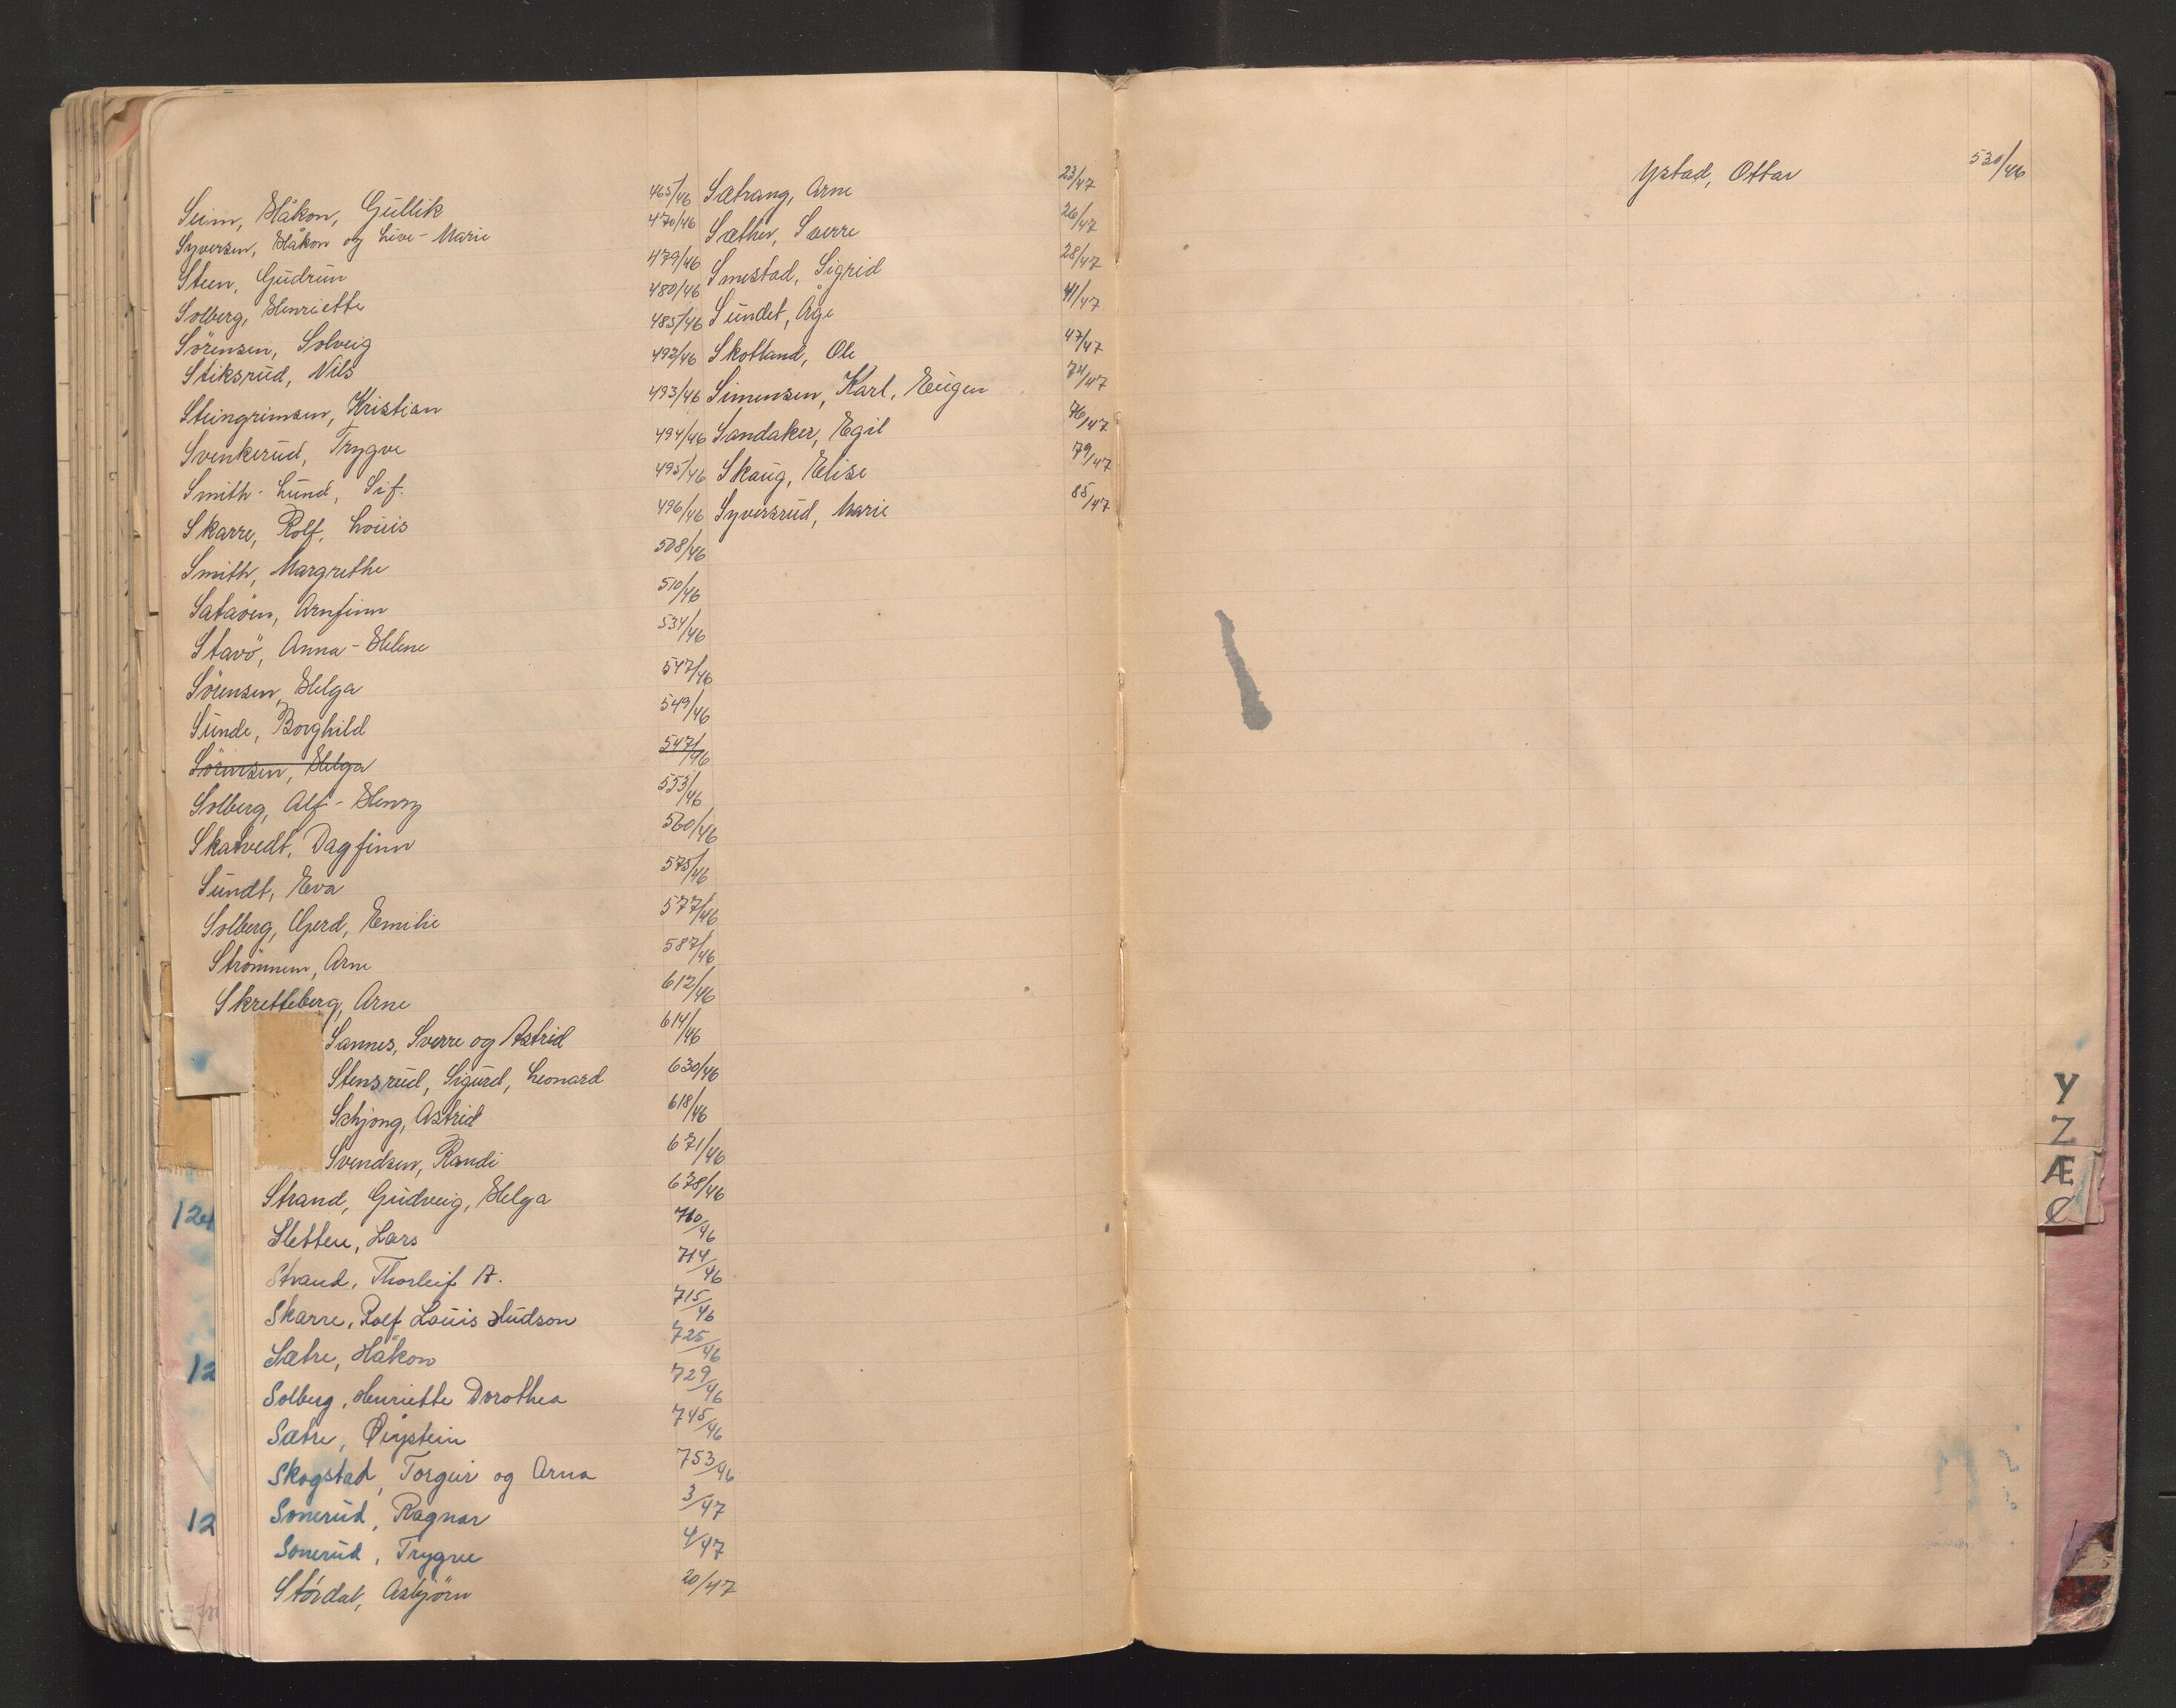 Seim, Håkon, Gullik 465/46
Syversen, Håkon og Live-Marie 470/46
Steen, Gudrun 479/46
Solberg, Henriette 480/46
Sörensen, Solveig 485/46
Stiksrud, Nils 492/46
Steingrimsen, Kristian 493/46
Svenkerud, Trygve 494/46
Smith-Lund, Sif. 495/46
Skarre, Rolf, Louis 496/46
Smith, Margrethe 508/46
Sataöen, Arnfinn 510/46
Stavö, Anna-Helene 534/46
Sörensen, Helga 547/46
Sunde, Borghild 549/46
Sörensen, Helga 547/46
Solberg, Alf-Henry 553/46
Skatvedt, Dagfinn 560/46
Sundt, Eva 575/46
Solberg, Gerd, Emilie 577/46
Strömnem, Arne 587/46
Skretteberg, Arne 612/46
Sannes, Sverre og Astrid 614/46
Stensrud, Sigurd, Leonard 630/46
Schjong, Astrid 618/46
Svendsen, Randi 671/46
Strand, Gudveig, Helga 678/46
Sletten, Lars 710/46
Strand, Thorleif A. 714/46
Skarre, Rolf Louis Hudson 715/46
Sætre, Håkon 725/46
Solberg, Henriette Dorothea 729/46
Sætre, Øiystein 745/46
Skogstad, Torgeir og Arna 753/46
Sonerud, Ragnar 3/47
Sonerud, Trygve 4/47
Stördal, Asbjörn 20/47
Sætrang, Arne 23/47
Sæther, Sverre 26/47
Smestad, Sigrid 28/47
Sundet, Åge 41/47
Skotland, Ole 47/47
Simensen, Karl, Eugen 74/47
Sandaker, Egil 76/47
Skaug, Elise 79/47
Syversrud, Marie 85/47
124
12
12
Ystad, Ottar 530/46
Y
Z
Æ
Ø